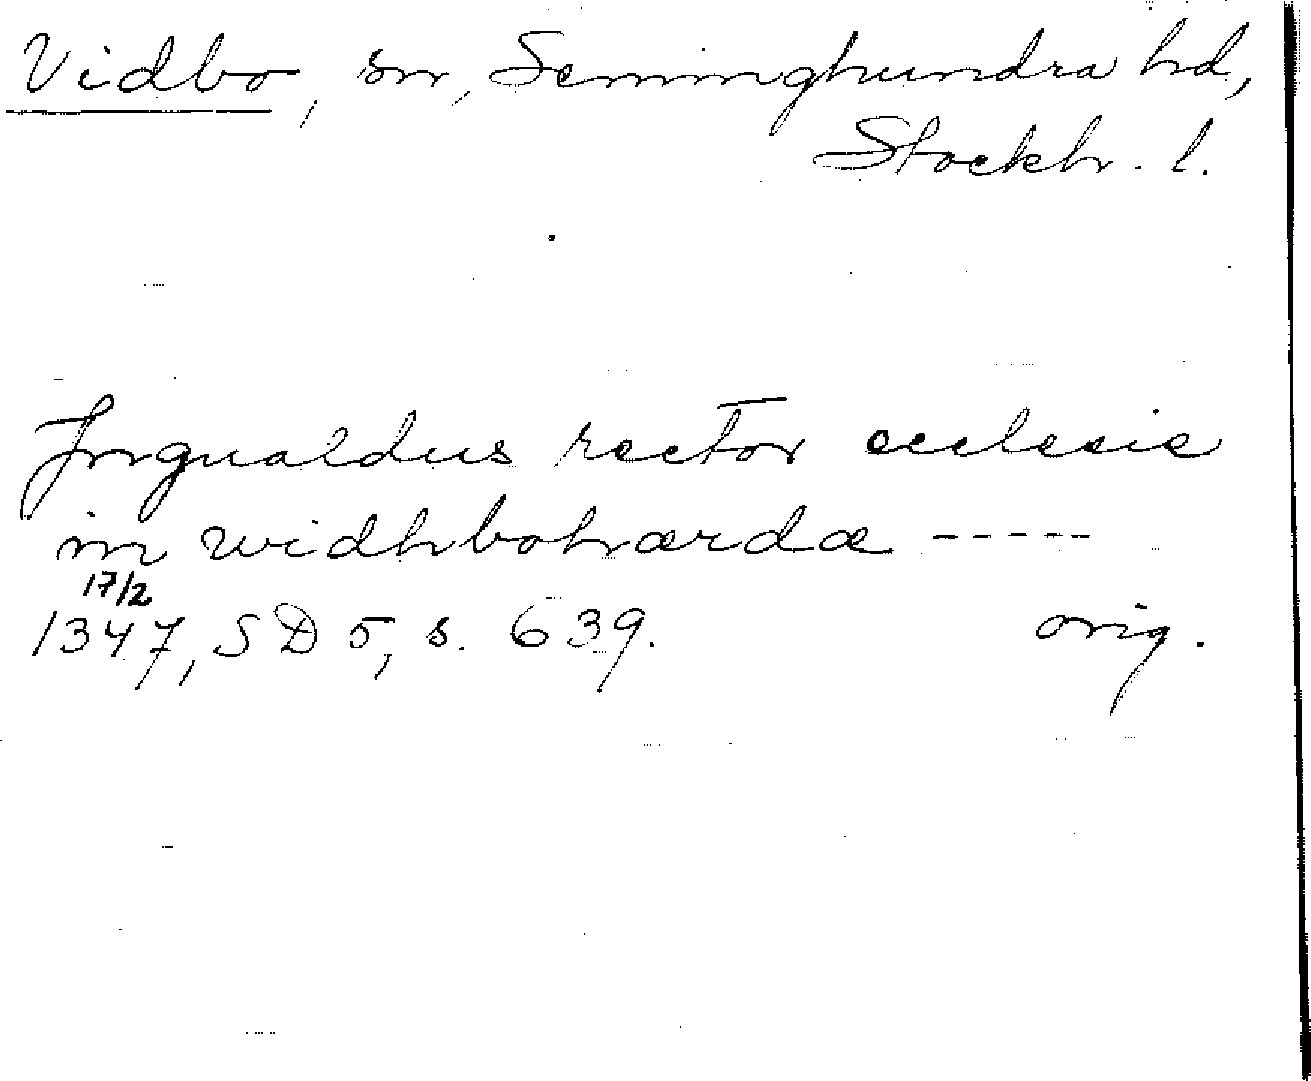 Vidbo, sn, Seminghundra hd,
Stockh. l.
Jngualdus rector ecclesie
in widhbohærdæ -----
17/2
1347, SD 5, s. 639. orig.